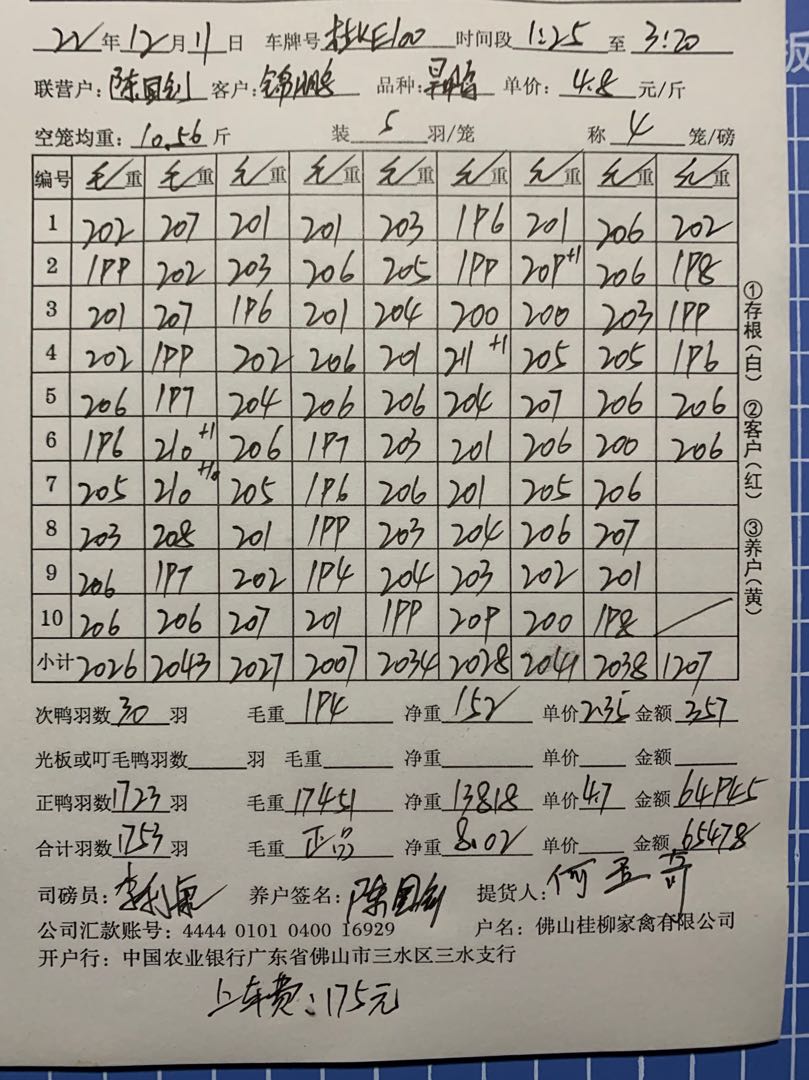 22年12月11日 车牌号 桂KE100 时间段 1:25 至 3:20
联营户: 陈国剑 客户: 锦鹏 品种: 单价: 4.8 元/斤
空笼均重: 10.56 斤 装 5 羽/笼 称 4 笼/磅
编号 毛/重 毛/重 毛/重 毛/重 毛/重 毛/重 毛/重 毛/重 毛/重
1 202 207 201 201 203 196 201 206 202
2 199 202 203 206 205 199 209+1 206 198
3 201 207 196 201 204 200 200 203 199
4 202 199 202 206 201 211+1 205 205 196
5 206 197 204 206 206 204 207 206 206
6 196 210+1 206 197 203 201 206 200 206
7 205 210 205 196 206 201 205 206
8 203 208 201 199 203 204 206 207
9 206 197 202 194 204 203 202 201
10 206 206 207 201 199 209 200 198
小计 2026 2043 2027 2007 2034 2028 2041 2038 1207
次鸭羽数 30 羽 毛重 194 净重 152 单价 2.35 金额 357
光板或叮毛鸭羽数 羽 毛重 净重 单价 金额
正鸭羽数 1723 羽 毛重 17451 净重 13818 单价 4.7 金额 64945
合计羽数 1753 羽 毛重 正品 净重 8.02 单价 金额 65478
司磅员: 养户签名: 陈国剑 提货人:
公司汇款账号: 4444 0101 0400 16929 户名: 佛山桂柳家禽有限公司
开户行: 中国农业银行广东省佛山市三水区三水支行
上车费: 175元
①存根(白) ②客户(红) ③养户(黄)
板